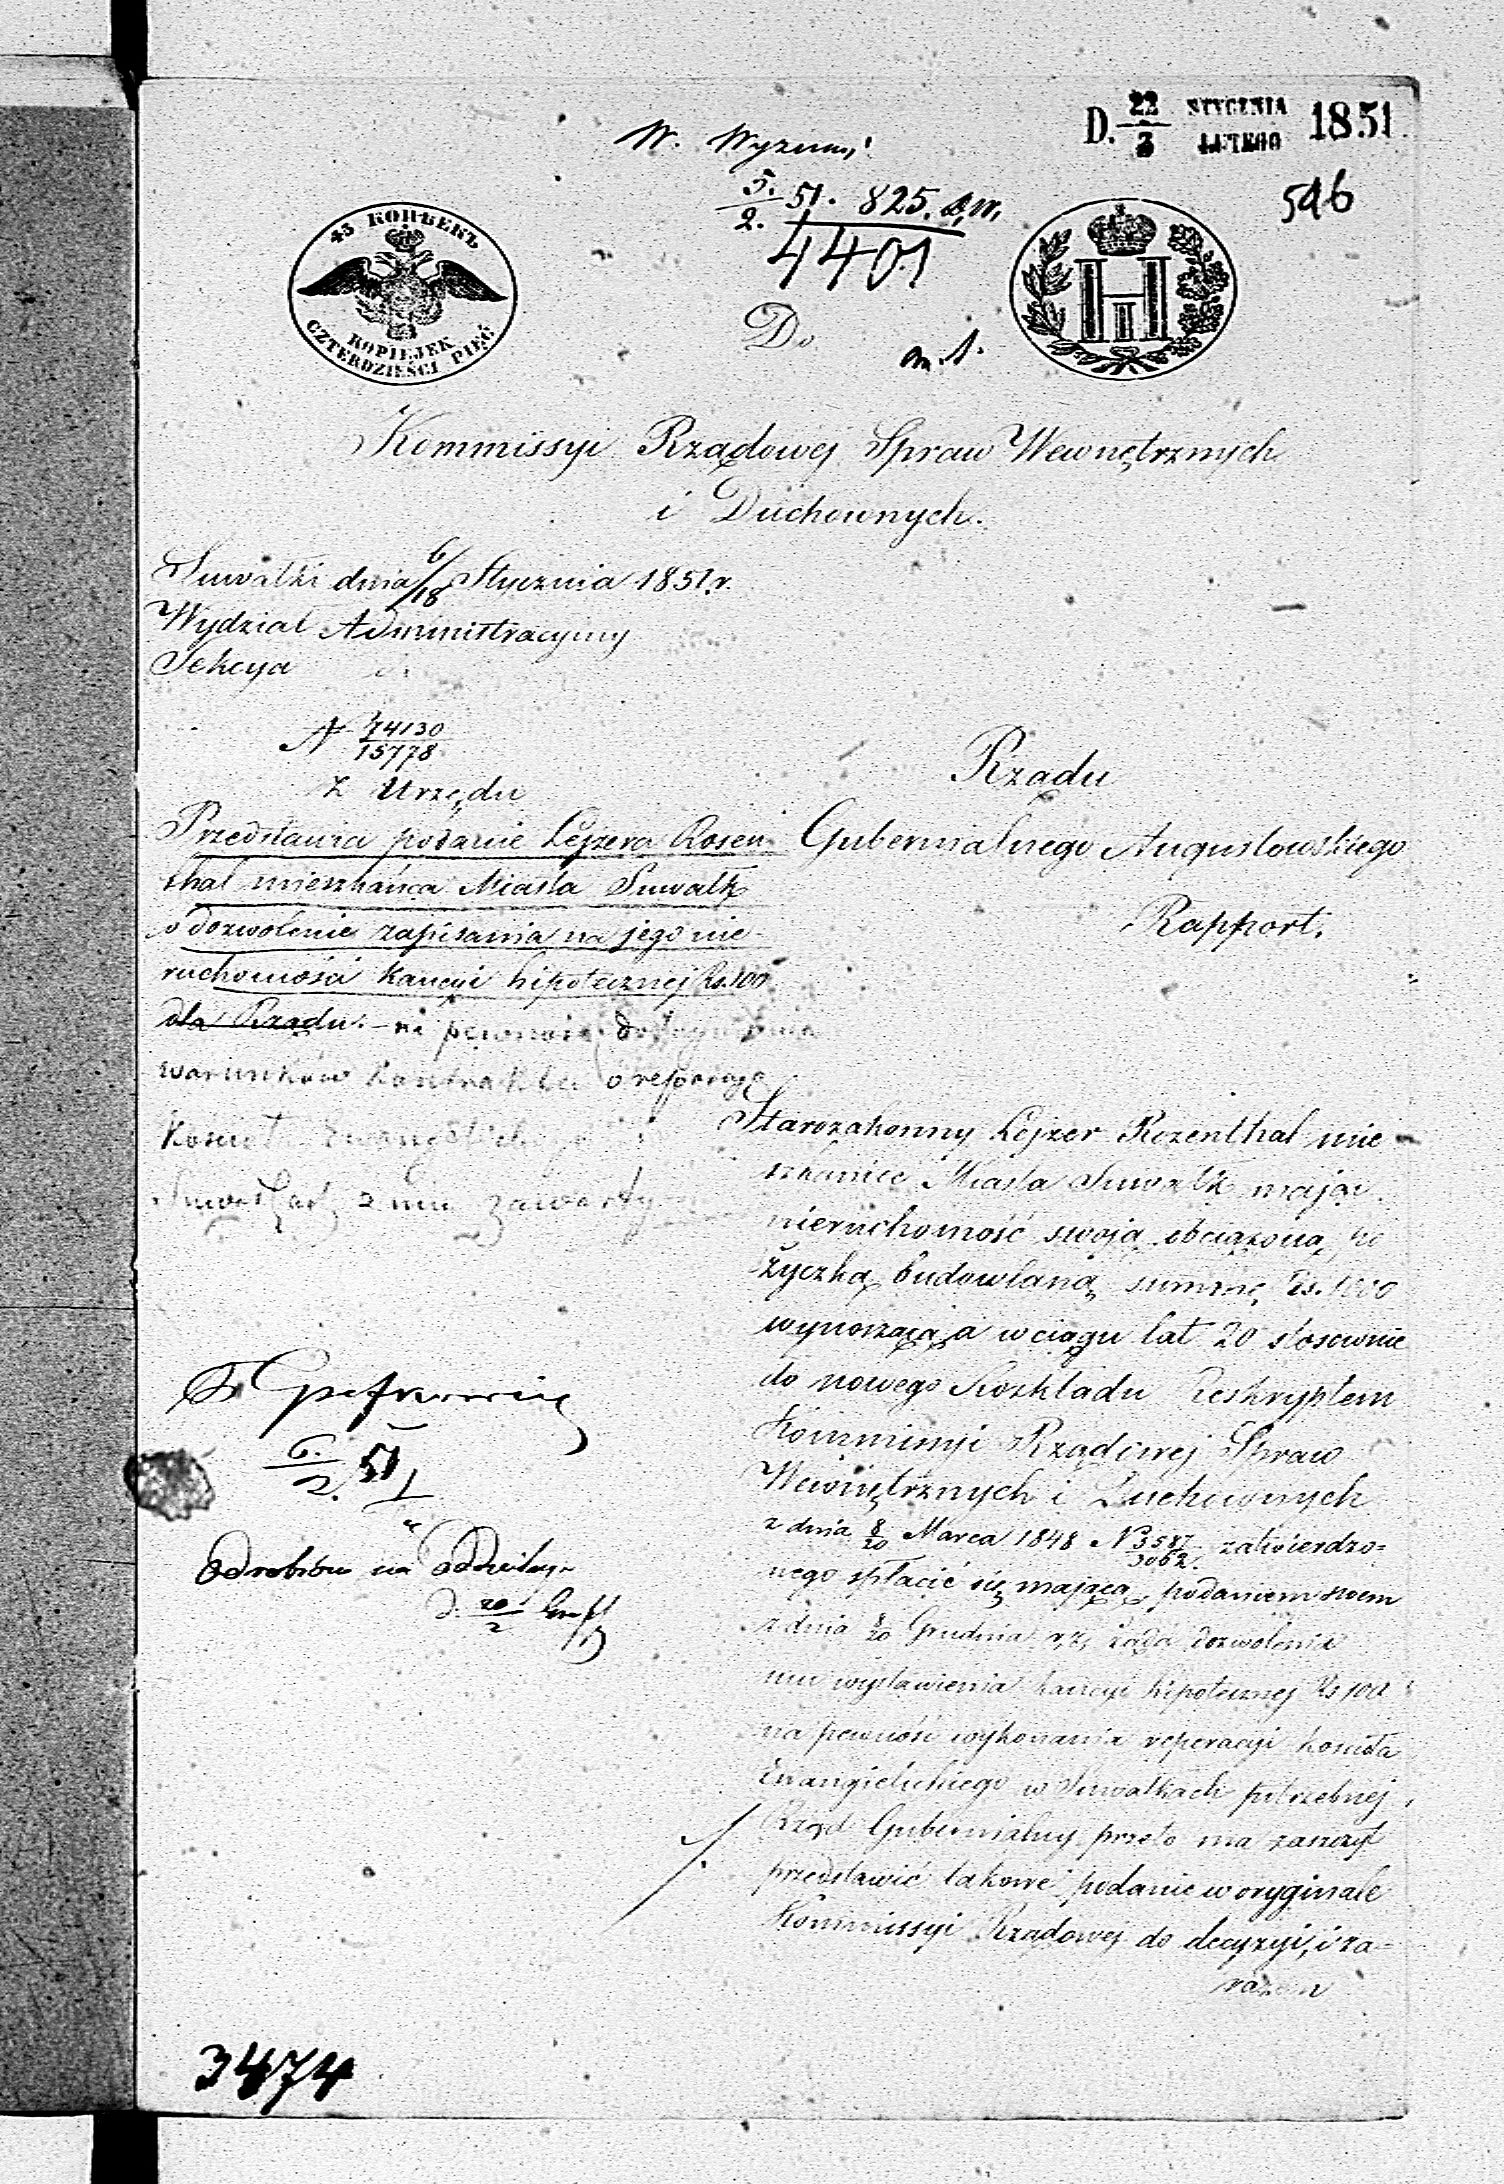 D. 22/3 STYCZNIA LUTEGO 1851
W.
5./2. 51. 825.
546
4401
45 КОПѢЕКЪ
KOPIEJEK
CZTERDZIEŚCI PIĘĆ
Do
Kommissyi Rządowej Spraw Wewnętrznych
i Duchownych.
Suwałki dnia 6/18 Stycznia 1851 r.
Wydział Administracyjny
Sekcya
N 74130/15778
Z Urzędu
Przedstawia podanie Lejzera Rosen
thal mieszkańca Miasta Suwałk
o dozwolenie zapisania na jego nie-
ruchomości kaucyi hipotecznej Rs. 100
dla Rządu. na pewność
warunków kontraktu o reperacyę
z nim zawarty
Rządu
Gubernialnego Augustowskiego
Rapport.
Starozakonny Lejzer Rozenthal mie-
szkaniec Miasta Suwałk mając
nieruchomość swoją obciążoną po
życzką budowlaną summę Rs. 1000
wynoszącą a w ciągu lat 20 stosownie
do nowego Rozkładu Reskryptem
Kommissyi Rządowej Spraw
Wewnętrznych i Duchownych
z dnia 8/20 Marca 1848 N 3587/3062 zatwierdzo=
nego spłacić się mającą, podaniem swem
z dnia 8/20 Grudnia r. z. żąda dozwolenia
mu wystawienia kaucyi hipotecznej Rs 100
na pewność wykonania reperacyi kościoła
Ewangielickiego w Suwałkach potrzebnej,
Rząd Gubernialny przeto ma zaszczyt
przedstawić takowe podanie w oryginale
Kommissyi Rządowej do decyzyi, i za=
razem
6./2. 51
d. 20/2
3474